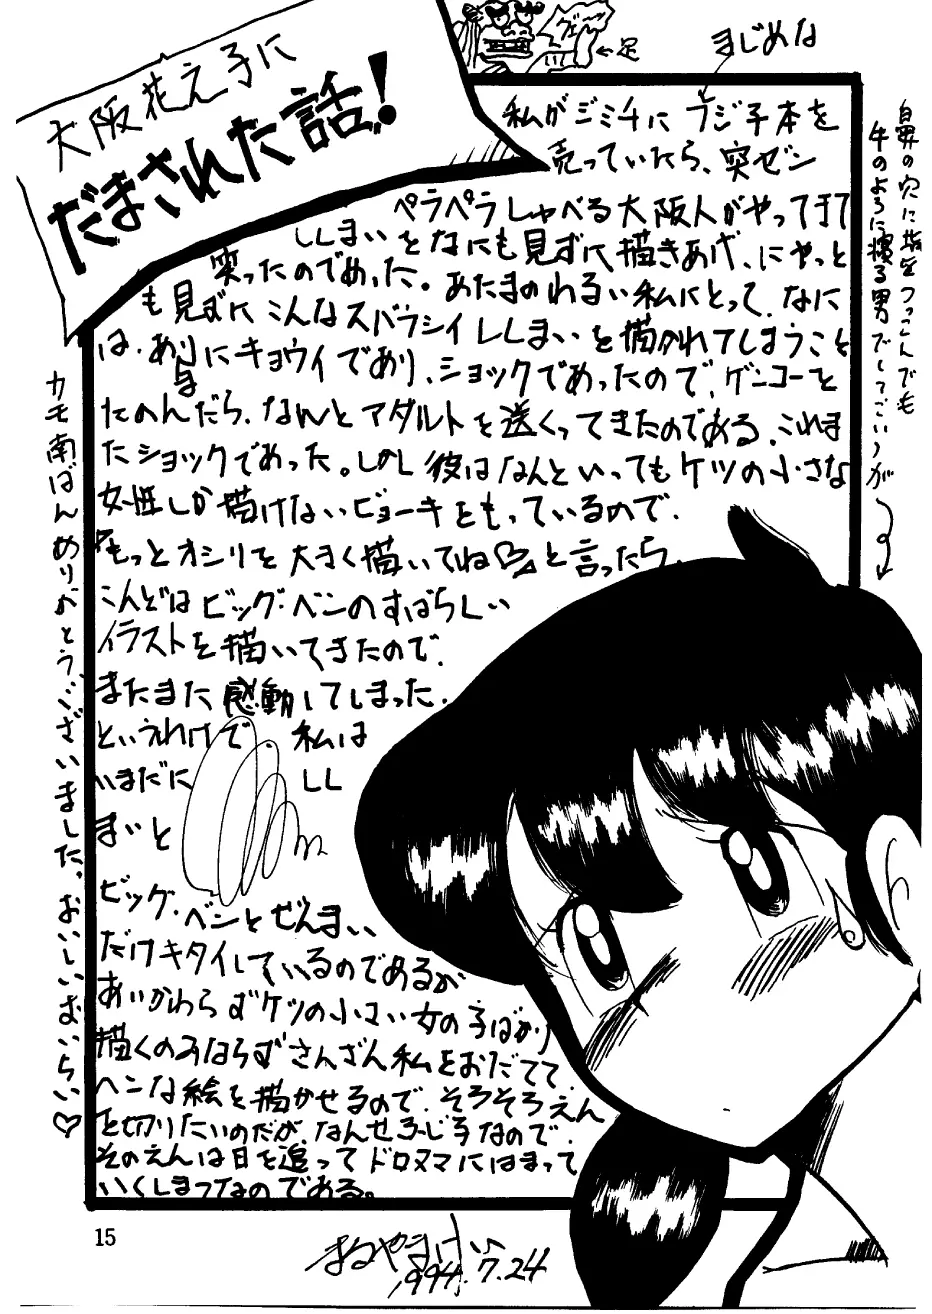 大阪花え子に
だまされた話!
ヴェ〜
←足
まじめな
私がジミチにフジ子本を
売っていたら、突ゼン
ペラペラしゃべる大阪人がやってきて
ししまいをなにも見ずに描きあげ、にやっと
笑ったのであった。あたまのわるい私にとって、なに
も見ずにこんなスバラシイししまいを描かれてしまうこと
は、ありにキョウイであり、ショックであったので、ゲンコーを
たのんだら、なんとアダルトを送くってきたのである。これま
たショックであった。しかし彼はなんといってもケツの小さな
女性しか描けないビョーキをもっているので、
『もっとオシリを大きく描いてね♡』と言ったら、
こんどはビッグ・ベンのすばらしい
イラストを描いてきたので、
またまた感動してしまった。
というわけで、私は
いまだにしし
まいと
ビッグ・ベンとぜんまい
だけキタイしているのであるが
あいかわらずケツの小さい女の子ばかり
描くのみならずさんざん私をおだてて、
ヘンな絵を描かせるので、そろそろえん
を切りたいのだが、なんせふじ子なので、
そのえんは日を追ってドロヌマにはまって
いくしまつなのである。
鼻の穴に指をつっこんでも
牛のように寝る男でしてございうが
カモ南ばんありがとうございました。おいしいおいらい♡
まるやまけい
1994.7.24
15